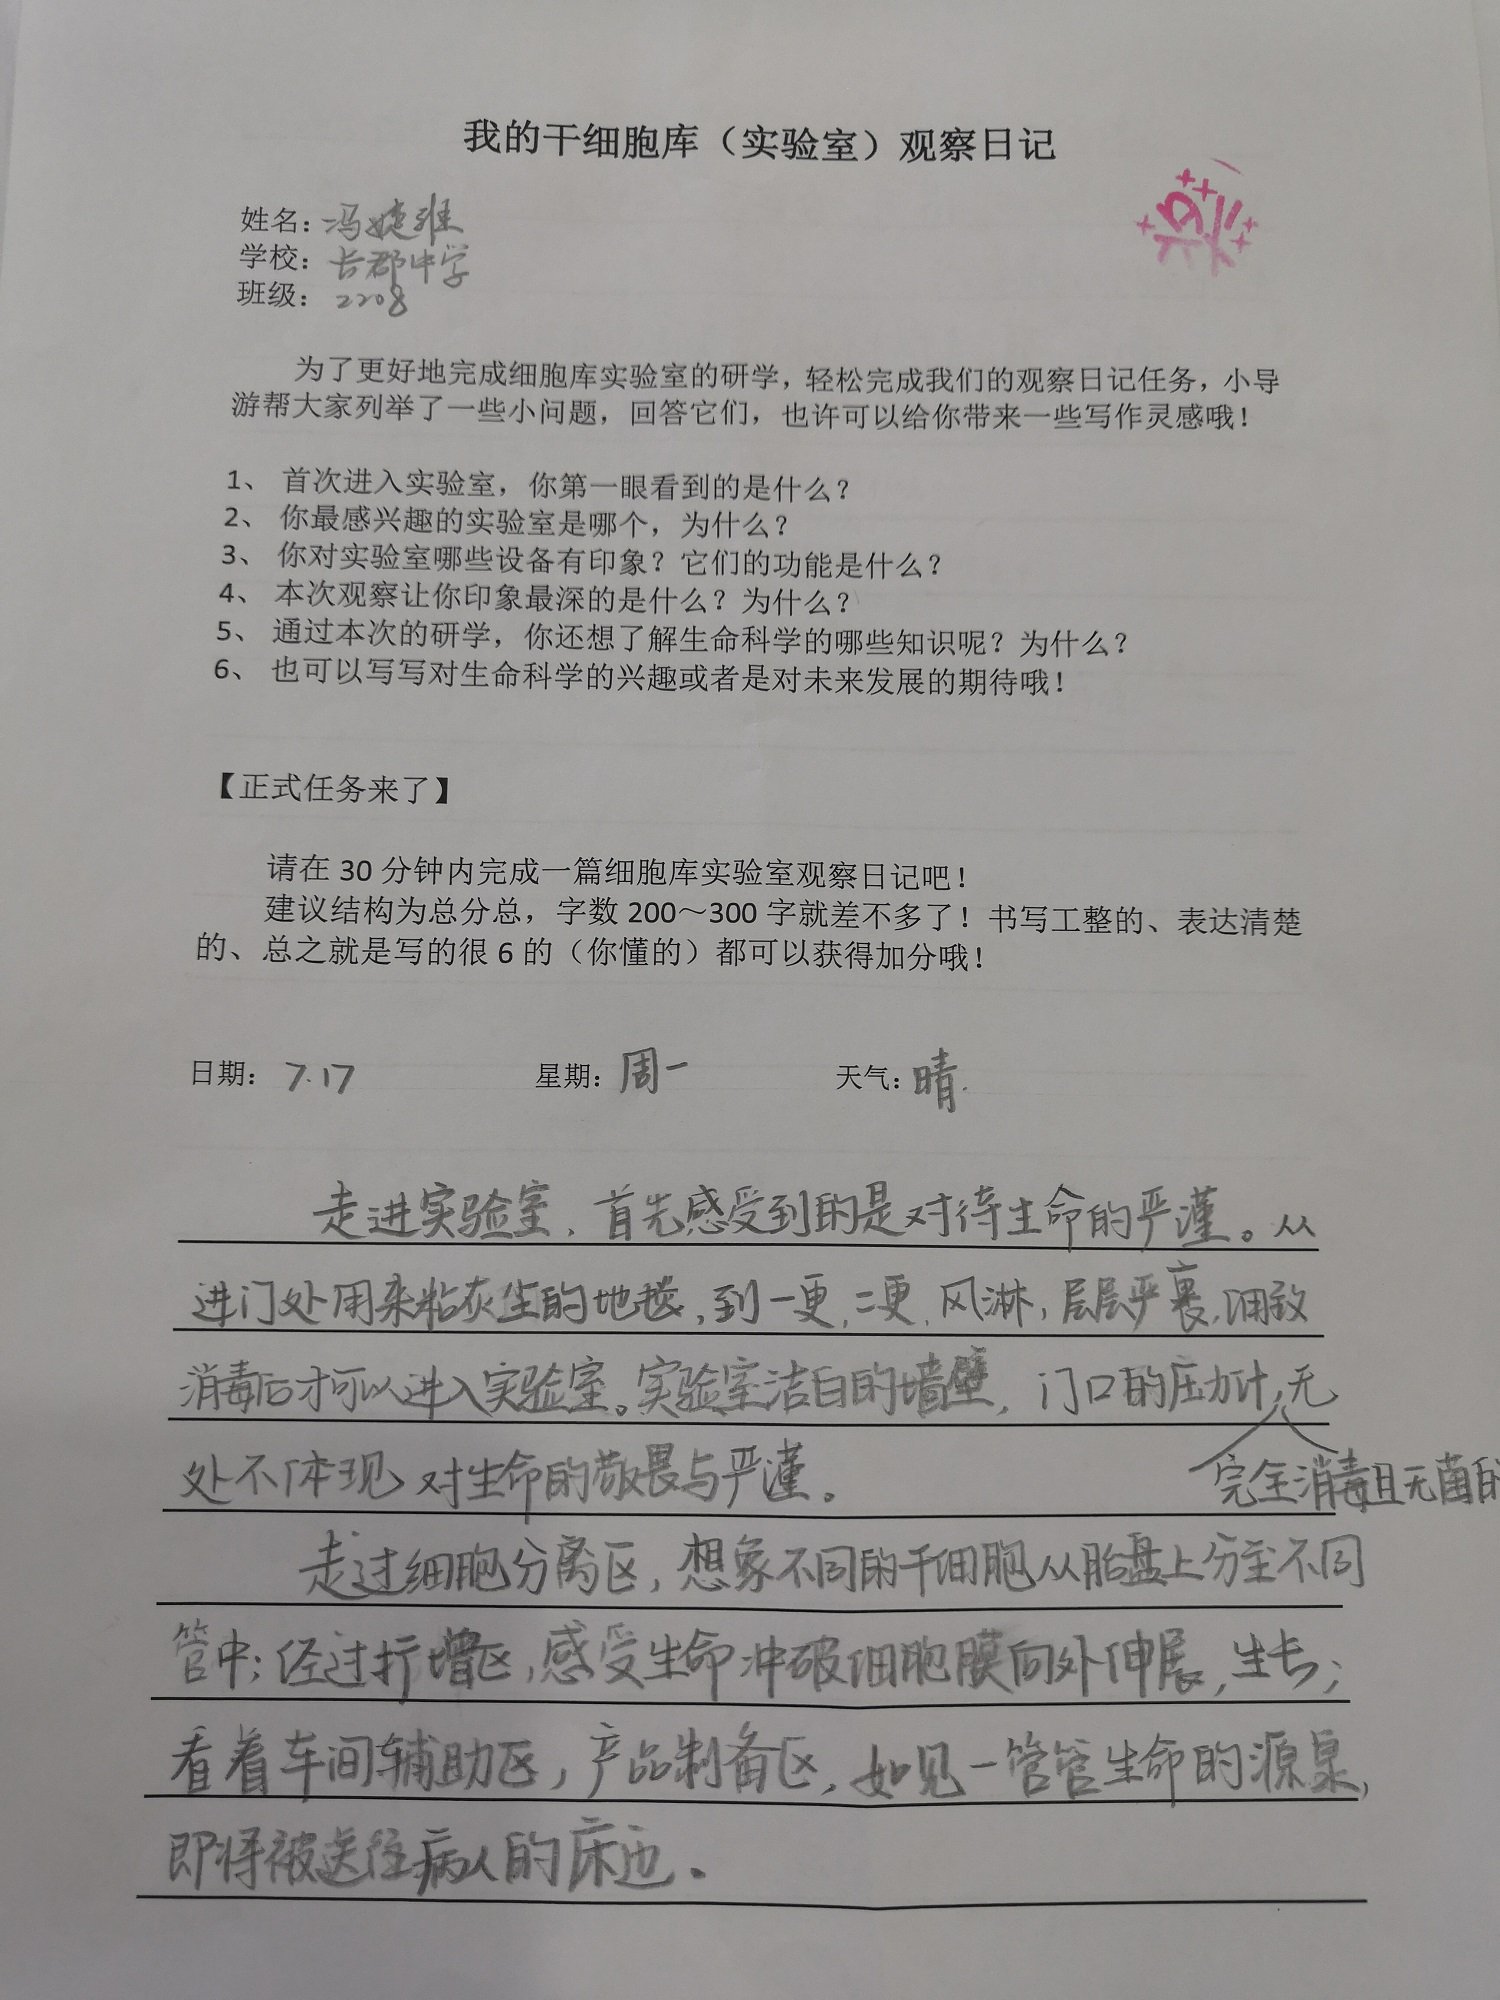 我的干细胞库（实验室）观察日记
姓名：冯婕雅
学校：长郡中学
班级：2208
为了更好地完成细胞库实验室的研学，轻松完成我们的观察日记任务，小导
游帮大家列举了一些小问题，回答它们，也许可以给你带来一些写作灵感哦！
1、 首次进入实验室，你第一眼看到的是什么？
2、 你最感兴趣的实验室是哪个，为什么？
3、 你对实验室哪些设备有印象？它们的功能是什么？
4、 本次观察让你印象最深的是什么？为什么？
5、 通过本次的研学，你还想了解生命科学的哪些知识呢？为什么？
6、 也可以写写对生命科学的兴趣或者是对未来发展的期待哦！
【正式任务来了】
请在 30 分钟内完成一篇细胞库实验室观察日记吧！
建议结构为总分总，字数 200～300 字就差不多了！书写工整的、表达清楚
的、总之就是写的很 6 的（你懂的）都可以获得加分哦！
日期： 7.17 星期：周一 天气：晴.
走进实验室，首先感受到的是对待生命的严谨。从
进门处用来粘灰尘的地毯，到一更，二更，风淋，层层严裹，
消毒后才可以进入实验室。实验室洁白的墙壁，门口的压力计，无
处不体现对生命的敬畏与严谨。
完全消毒且无菌的
走过细胞分离区，想象不同的干细胞从胎盘上分至不同
管中；经过扩增区，感受生命冲破细胞膜向外伸展，生长；
看着车间辅助区，产品制备区，如见一管管生命的源泉，
即将被送往病人的床边。